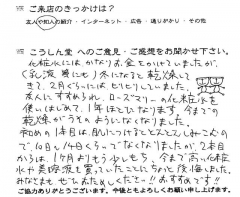 ご来店のきっかけは?
友人や知人の紹介・インターネット・広告・通りがかり・その他
こうしん堂 へのご意見・ご感想をお聞かせ下さい。
化粧水にはかなりお金をかけていましたが、
(乳液 質にも) 冬になると乾燥して
きて、2月ぐらいには、ピリピリしてました。
友人にすすめられ、ローズマリーの化粧水を
使いはじめて、1年ほどになります。今までの
乾燥がうそのようになりました。
初めの1本目は、肌につけるととんとんしみこむの
で、10日〜14日くらいでなくなりましたが、2本目
からは、1ヶ月よりもう少しもち、今まで高い化粧
水や美容液を買っていたことにちょっと後悔しました。
みなさまもぜひおためしください!! おすすめです!!
ご協力ありがとうございます。今後ともよろしくお願い申し上げます。